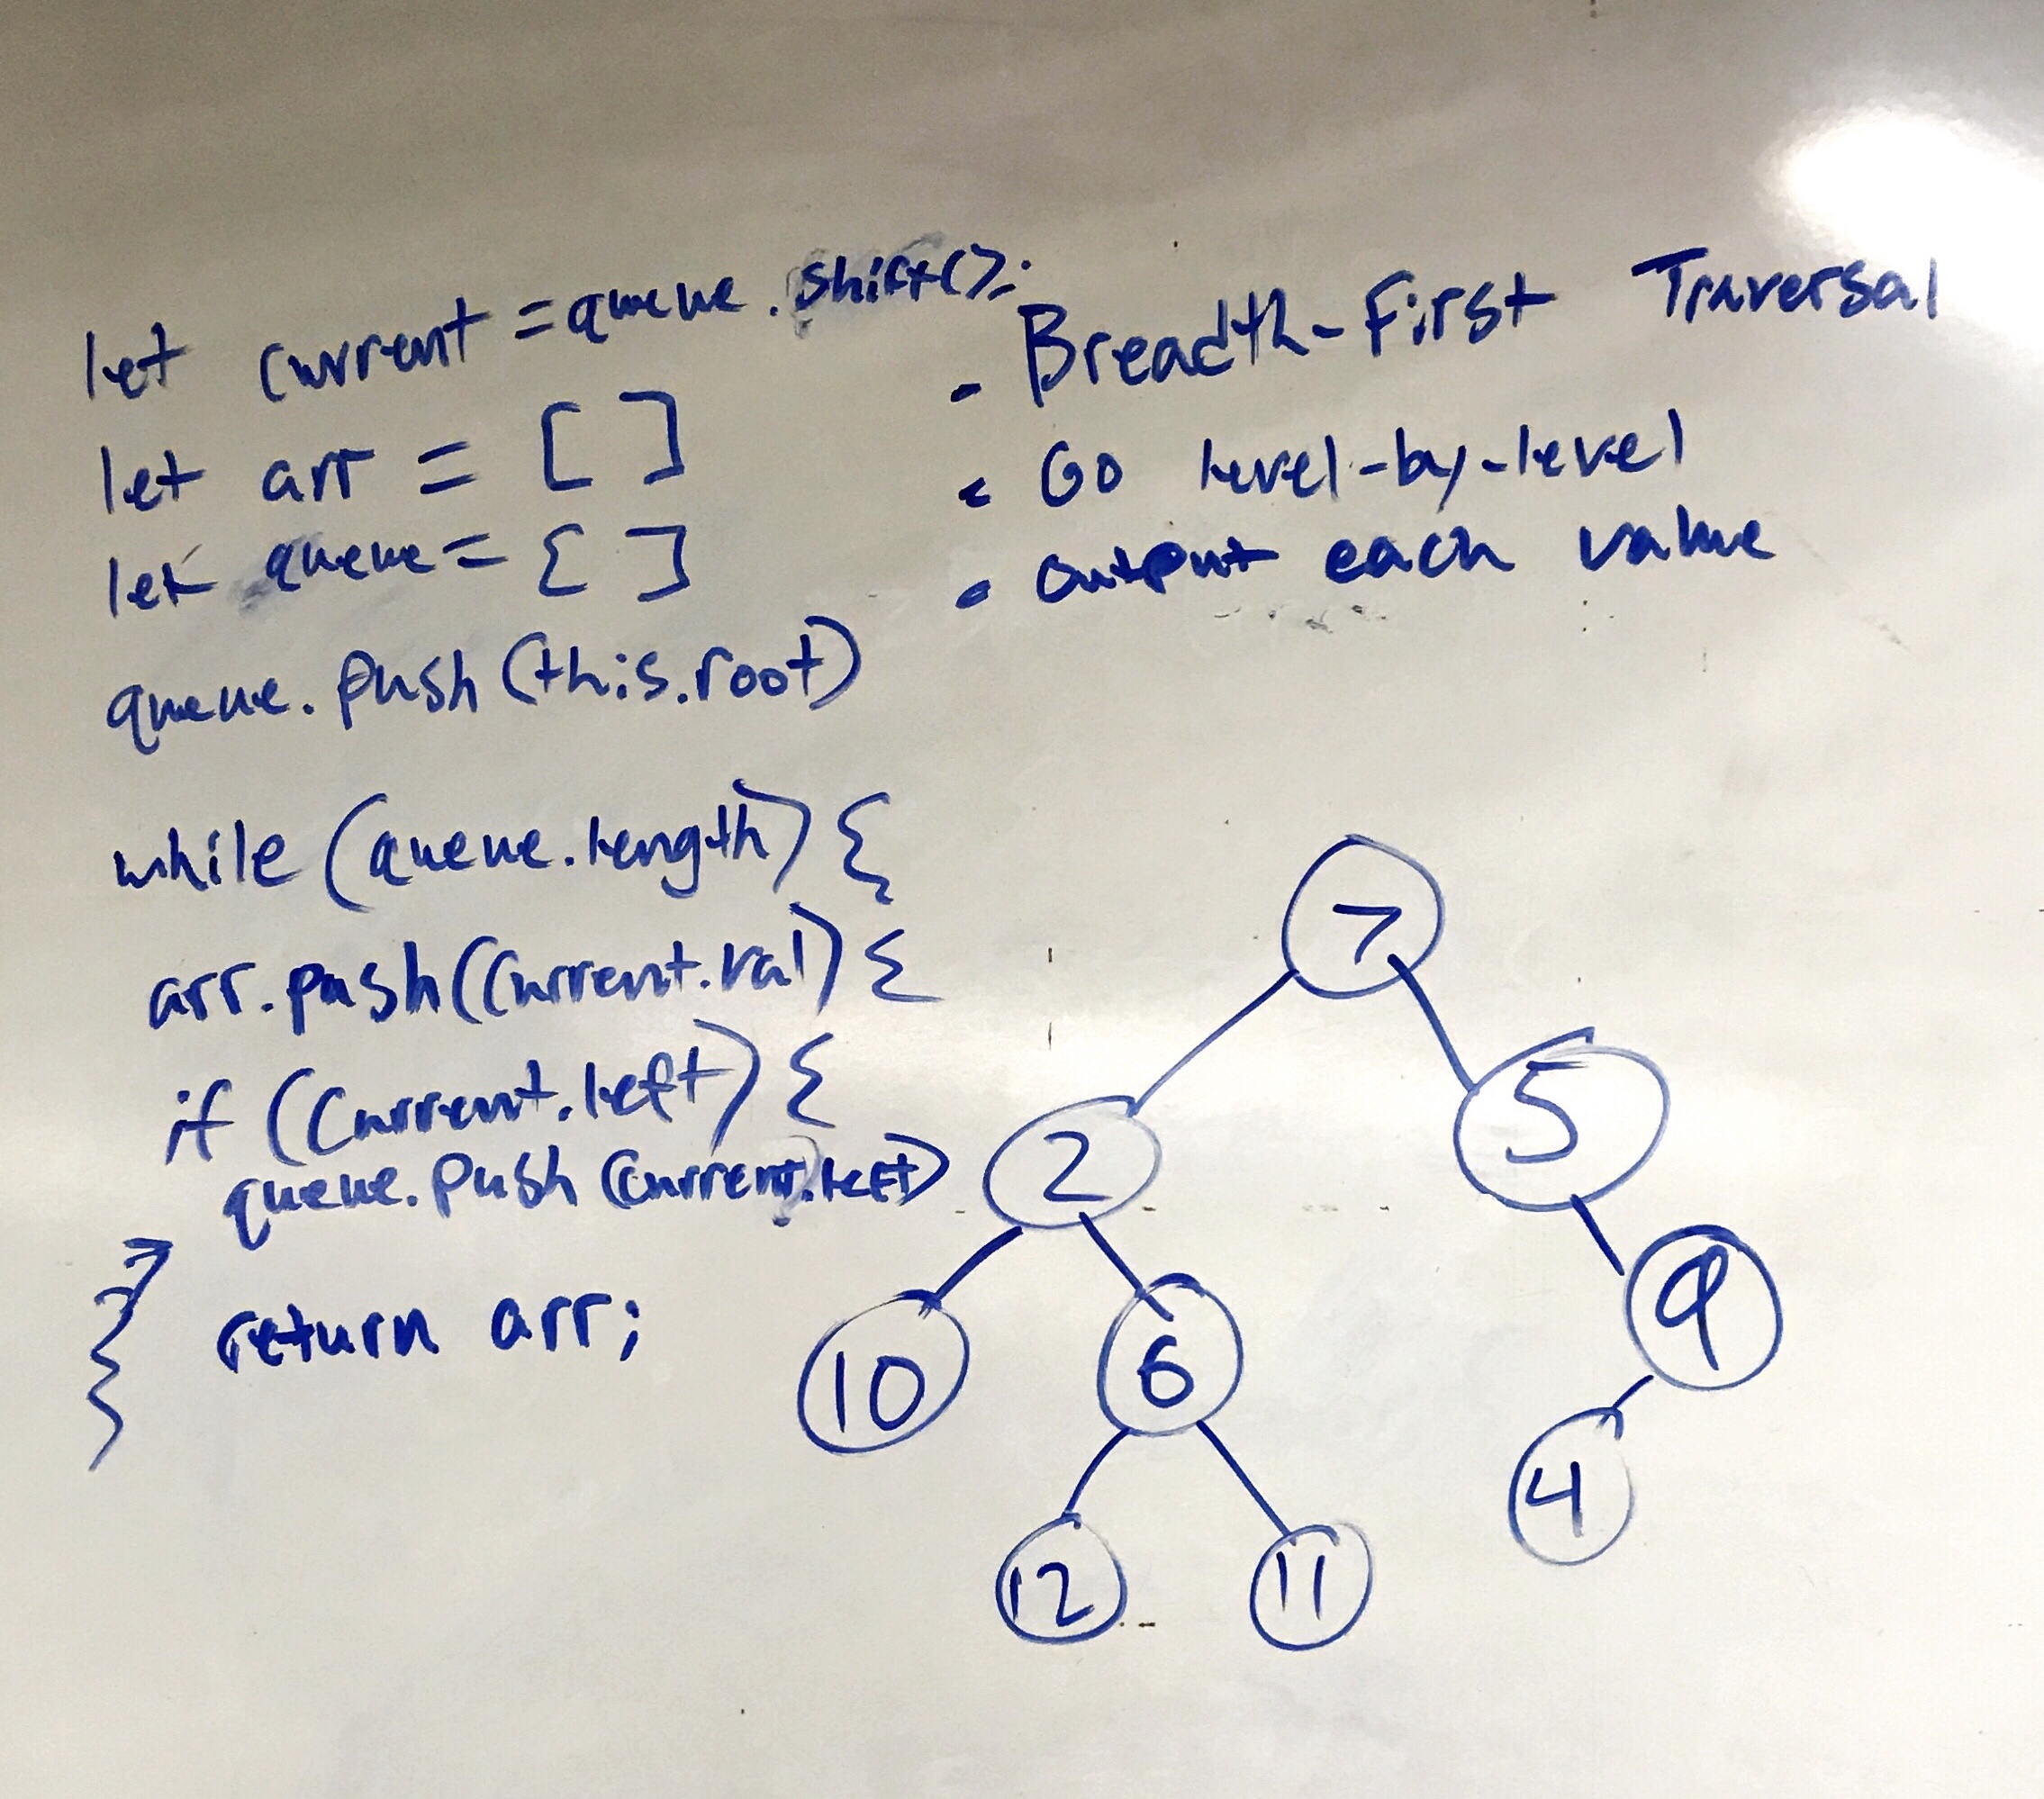 let current = queue.shift();
let arr = [ ]
let queue = { ]
queue.push(this.root)
while (queue.length) {
arr.push(current.val) {
if (current.left) {
queue.push(current.left)
return arr;
}
- Breadth-First Traversal
• Go level-by-level
• output each value
7
2
5
10
6
9
12
11
4